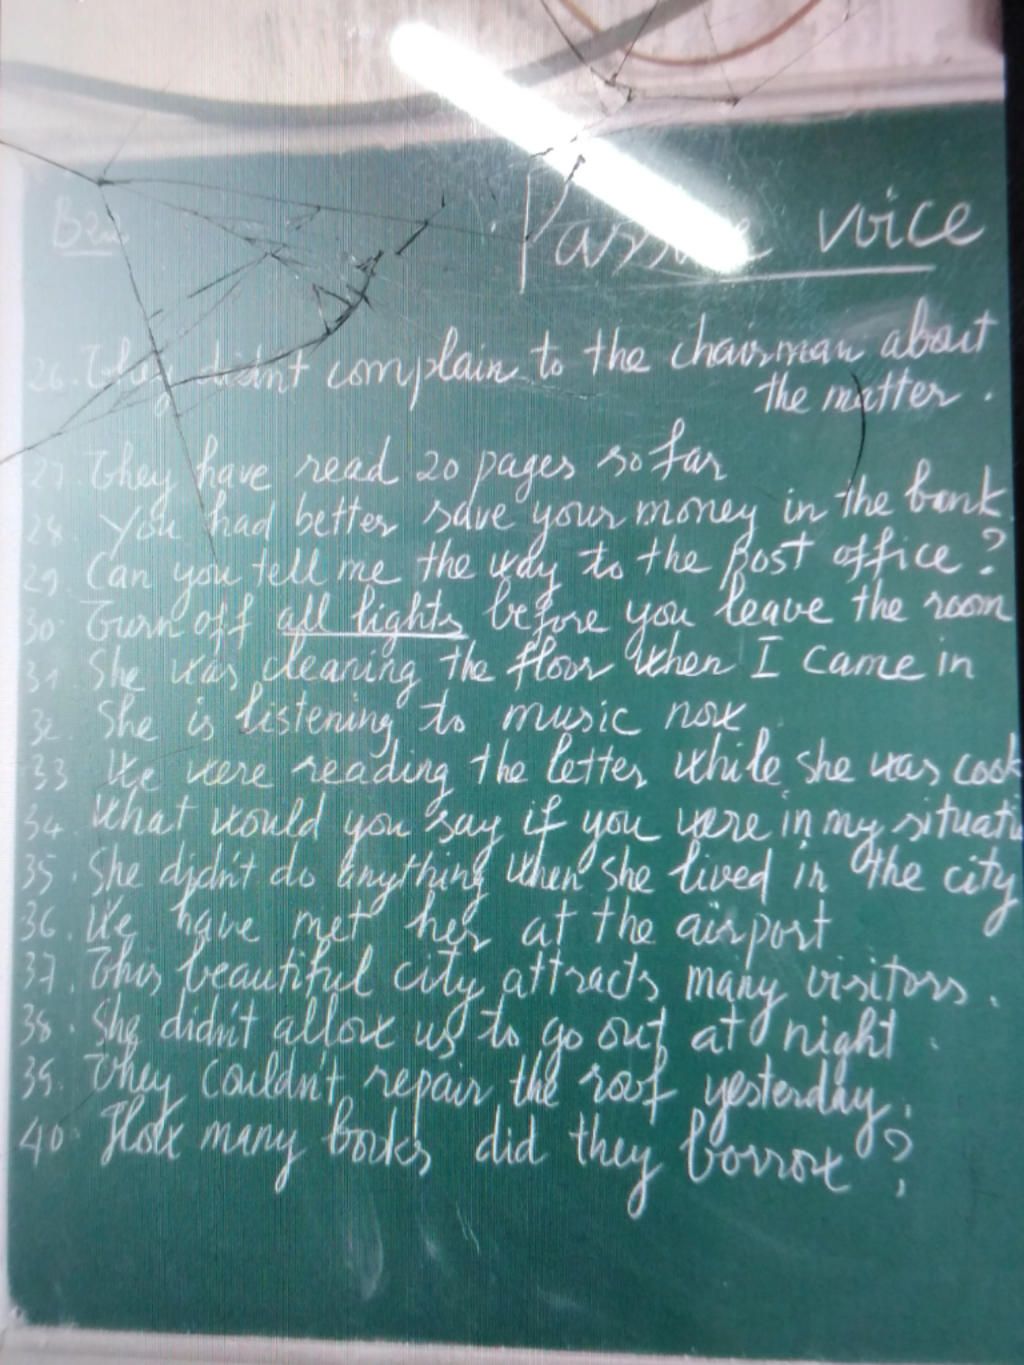 Passive voice
26. They didn't complain to the chairman about
the matter.
27. They have read 20 pages so far
28. You had better save your money in the bank.
29. Can you tell me the way to the post office?
30. Turn off all lights before you leave the room
31. She was cleaning the floor when I came in
32. She is listening to music now.
33 We were reading the letter while she was cook
34. What would you say if you were in my situati
35. She didn't do anything when she lived in the city
36. We have met her at the airport
37. This beautiful city attracts many visitors.
38. She didn't allow us to go out at night.
39. They couldn't repair the roof yesterday.
40. How many books did they borrow?